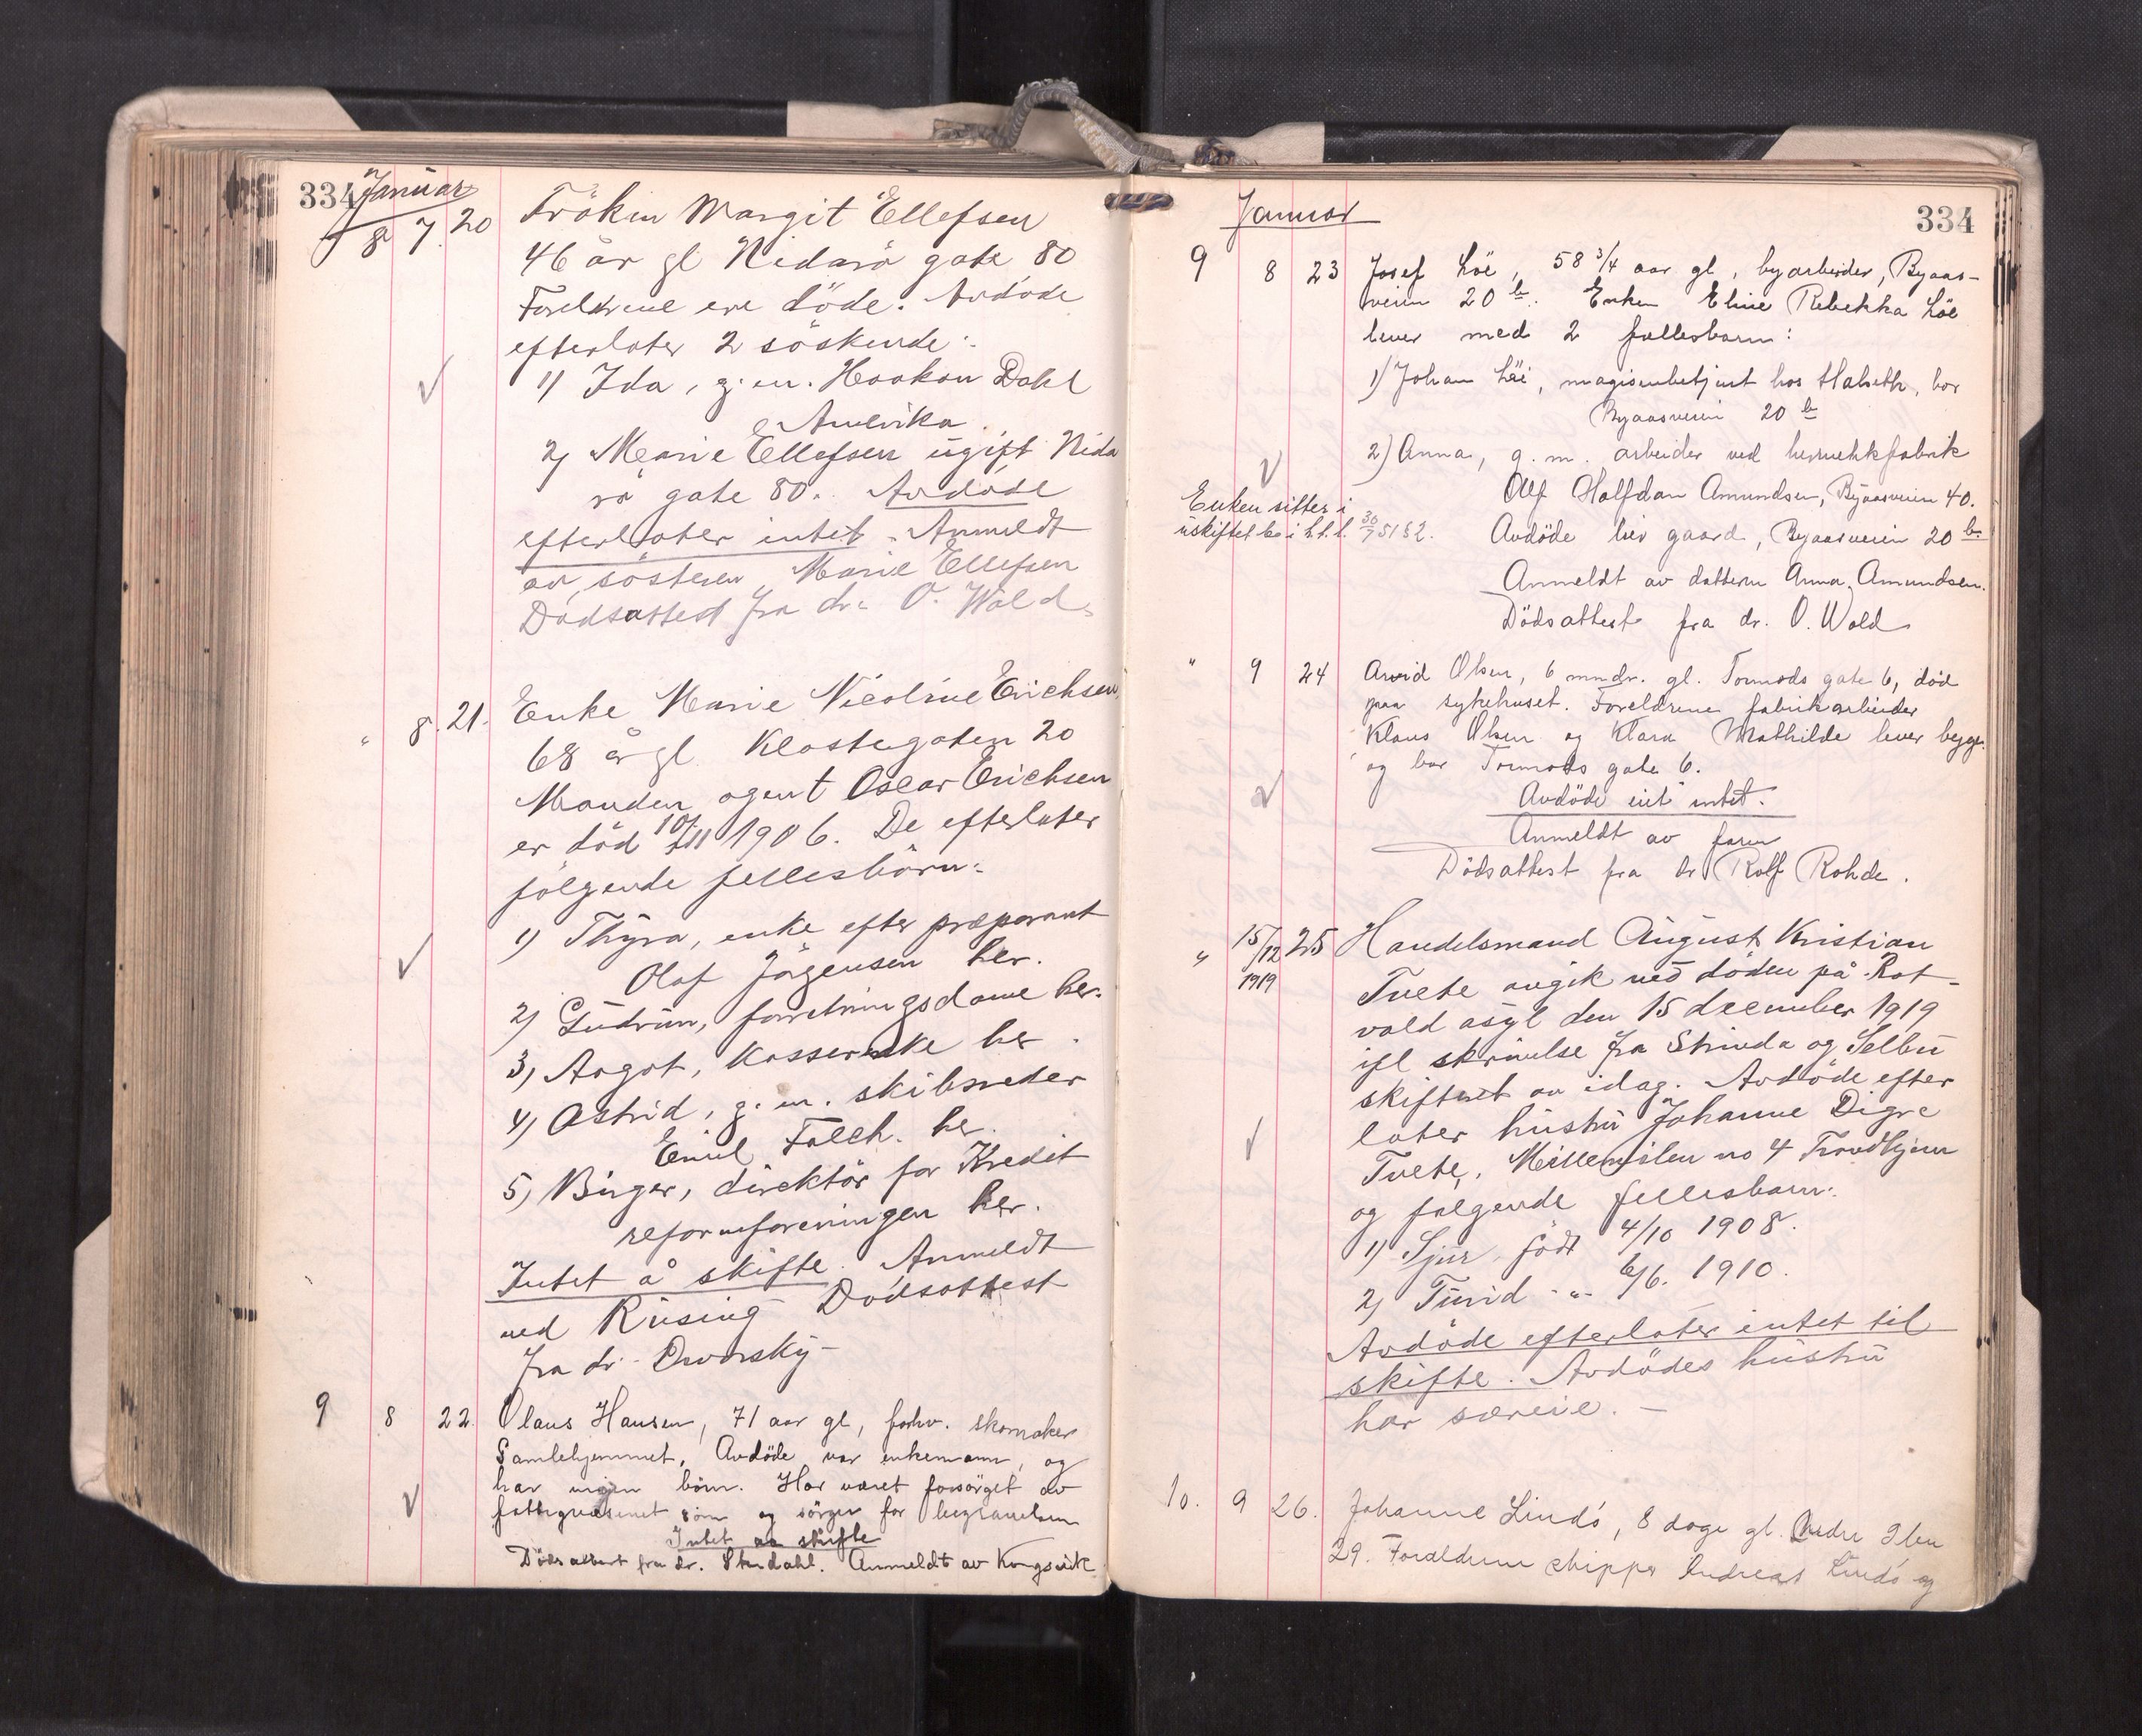 334 Januar
8 7. 20 Fröken Margit Ellefsen
46 år gl Nidarö gate 80
Foreldrene ere döde. Avdöde
efterlater 2 söskende:
1) Ida, g. m. Haakon Dahl
Amerika
2) Marie Ellefsen ugift Nida
rö gate 80. Avdöde
efterlater intet. Anmeldt
av sösteren Marie Ellefsen
Dödsattest fra dr. O. Wold
" 8. 21. Enke Marie Nicoline Erichsen
68 år gl Klostergaten 20
Manden agent Oscar Erichsen
er död 10/11 1906. De efterlater
fölgende fellesbörn:
1) Thyra, enke efter preparant
Olaf Jörgensen her.
2) Gudrun, forretningsdame her.
3) Aagot, kassererske her.
4) Astrid, g. m. skibsreder
Emil Falch. her.
5) Birger, direktör for Kredit
reformforeningen her.
Intet å skifte. Anmeldt
ved Rusing Dödsattest
fra dr. Owarsky
9 8 22. Olaus Hansen, 71 aar gl, forhv. skomaker
Gamlehjemmet. Avdöde var enkemann, og
har ingen börn. Har været forsörget av
fattigvæsenet som og sörger for begravelsen
Intet aa skifte
Dödsattest fra dr. Stendahl. Anmeldt av Kongsvik
Januar 334
9 8 23 Josef Löe, 58 3/4 aar gl, byarbeider, Byaas-
veien 20 b. Enken Eline Rebekka Löe
lever med 2 fællesbarn:
1) Johan Löe, magasinbetjent hos Halseth, bor
Byaasveien 20 b
2) Anna, g. m. arbeider ved
Olf Halfdan Amundsen, Byaasveien 40.
Enken sitter i
uskiftet bo i h. t. l. 30/7 51 § 2. Avdöde eier gaard, Byaasveien 20 b.
Anmeldt av datteren Anna Amundsen.
Dödsattest fra dr. O. Wold
" 9 24 Arvid Olsen, 6 mndr. gl. Tormods gate 6, död
paa sykehuset. Foreldrene fabrikarbeider
Klaus Olsen og Klara Mathilde lever begge
og bor Tormods gate 6.
Avdöde eiet intet.
Anmeldt av faren
Dödsattest fra dr Rolf Rohde.
" 15/12 1919 25 Handelsmand August Kristian
Tvete avgik ved döden på Rot-
vold asyl den 15 december 1919
ifl skrivelse fra Strinda og Selbu
skifteret av idag. Avdöde efter
later hustru Johanne Digre
Tvete, Mellemilen no 4 Trondhjem
og fölgende fellesbarn:
1) Sjur, födt 4/10 1908.
2) Turid -"- 6/6. 1910.
Avdöde efterlater intet til
skifte. Avdödes hustru
har særeie. -
10. 9 26. Johanne Lindö, 8 dage gl. Nedre Ilen
29. Foreldrene skipper Andreas Lindö og